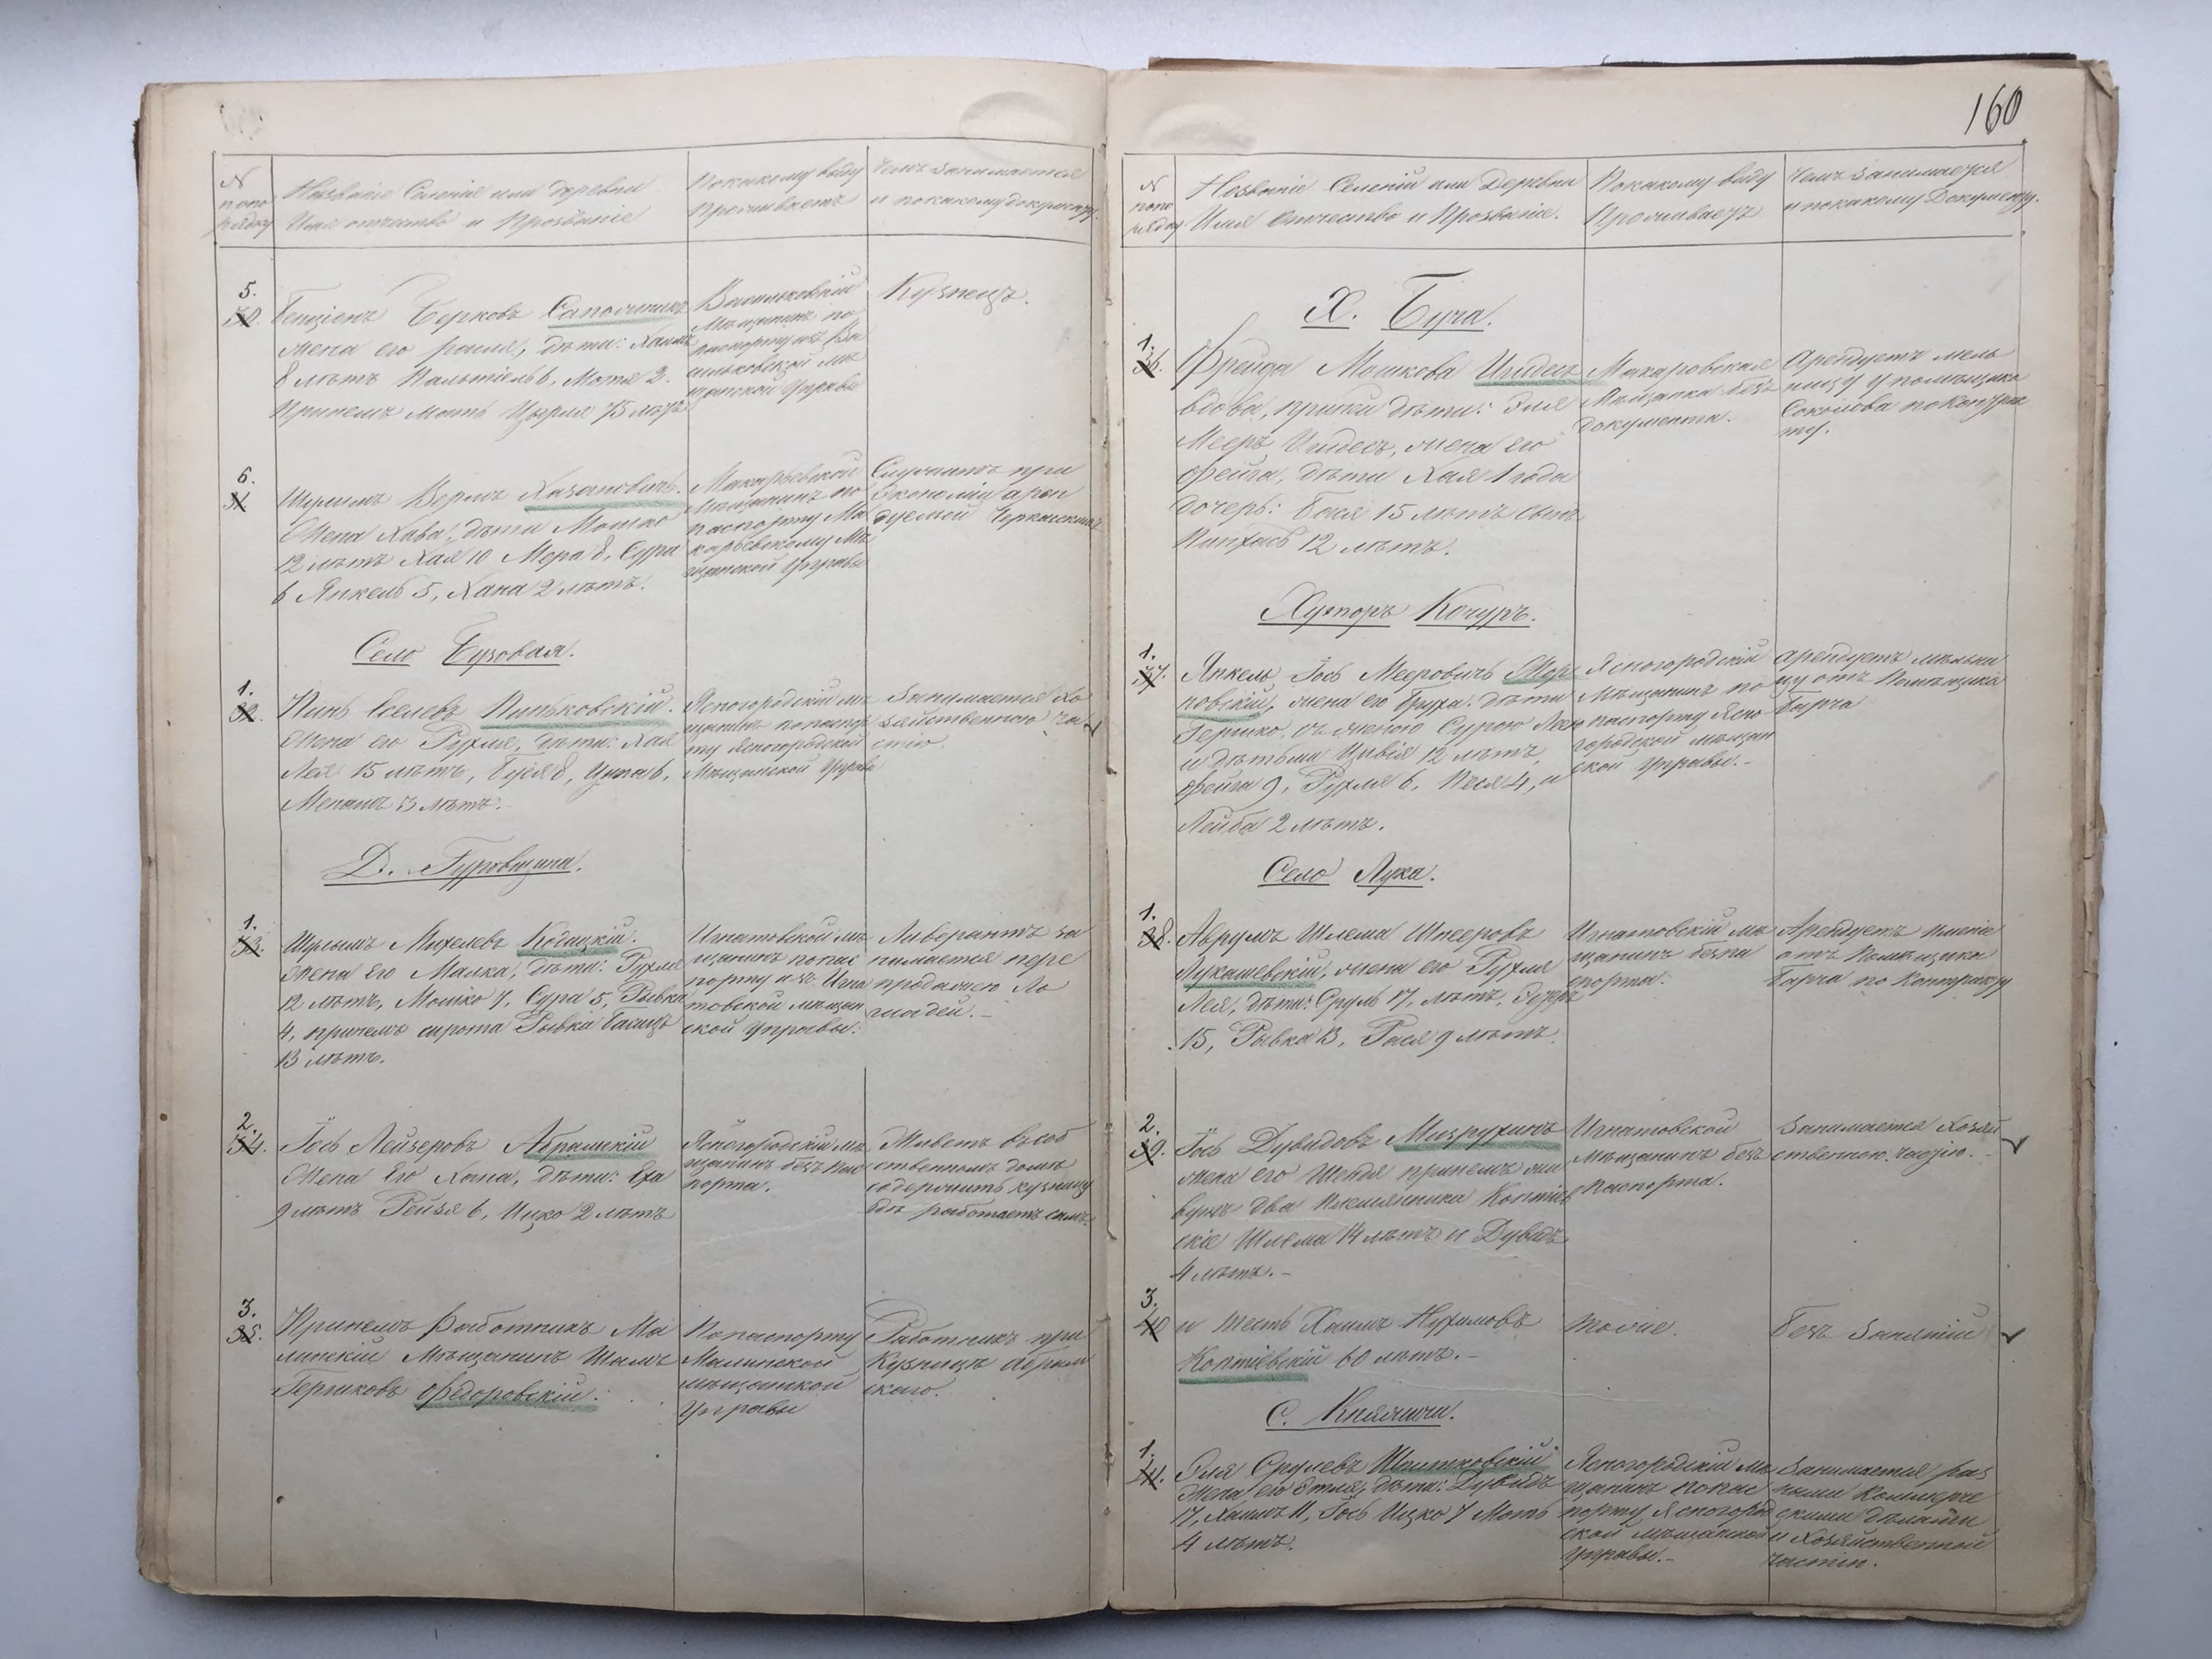 N
по по
рядку
Названіе Селенія или деревни
Имя отчество и Прозваніе
По какому виду
Проживаетъ
Чемъ занимается
и по какому документу.
5.
30.
Берковъ Сапожникъ
жена его Рахля, дѣти: Хаимъ
8 лѣтъ Пальтіель 6, Мотя 2.
При немъ мать Цырля 75 лѣтъ
Васильковскій
Мѣщанинъ по
паспорту изъ Ва
сильковской мѣ
щанской Управы
Кузнецъ.
6.
31
Шулимъ Берлъ Хазановичъ.
Жена Хова, дѣти Мошко
12 лѣтъ Хая 10 Мера 8, Сура
6 Янкель 5, Хана 2 лѣтъ.
Макарьевской
Мѣщанинъ по
паспорту Ма
карьевскому Мѣ
щанской Управы
Служитъ при
Экономіи арен
дуемой
Село Бузовая.
1.
32.
Пинь Іоселевъ Паньковскій.
Жена его Рухля, дѣти: Хая
Лея 15 лѣтъ, Буся 8, Ципа 6,
3 лѣтъ.
Ясногородскій мѣ
щанинъ по паспор
ту Ясногородской
Мѣщанской Управы
Занимается хо
зяйственною ча
стію.
Д. Гуровщина.
1.
33.
Шулымъ Михелевъ
жена его Малка, дѣти: Рухля
12 лѣтъ, Мошко 7, Сура 5, Рывка
4, при немъ сирота Рывка
13 лѣтъ.
Игнатовской мѣ
щанинъ по пас
порту изъ Игна
товской мѣщан
ской Управы.
Ливерантъ за
нимается пере
продажею Ло
шадей. -
2.
34.
Іось Лейзеровъ Абрамскій
Жена Его Хана, дѣти:
9 лѣтъ Рейзя 6, Ицко 2 лѣтъ
Ясногородскій мѣ
щанинъ безъ пас
порта.
Живетъ въ соб
ственномъ домѣ
содержитъ кузницу
гдѣ работаетъ самъ.
3.
35.
При немъ Работникъ Ма
линскій Мѣщанинъ
Гершковъ Федоровскій.
По паспорту
Малинской
мѣщанской
Управы
Работникъ при
Кузницѣ Абрам
скаго.
160
N
по по
рядку
Названіе Селеній или Деревни
Имя Отчество и Прозваніе.
По какому виду
Проживаетъ
Чемъ занимается
и по какому Документу.
Х. Буча.
1.
36.
Фрейда Мошкова Иидесъ
вдова, при ней дѣти: Эля
Мееръ Иидесъ, жена его
Фейга, дѣти Хая 1 года
дочерь: Бася 15 лѣтъ сынъ
Пинхасъ 12 лѣтъ.
Макаровская
Мѣщанка безъ
документа.
Арендуетъ мель
ницу у помѣщика
Соколова по контрак
ту.
Хуторъ Кочуръ.
1.
37.
Янкель Іось Мееровичъ Мор
новскій, жена его Бруха. дѣти
Гершко съ женою Сурою Леею
и дѣтьми Цивія 12 лѣтъ,
Фейга 9, Рухля 6, Песя 4, и
Лейба 2 лѣтъ.
Ясногородскій
Мѣщанинъ по
паспорту Ясно
городской мѣщан
ской Управы. -
арендуетъ мельни
цу отъ Помѣщика
Барча
Село Лука.
1.
38.
Аврумъ Шлема Шнееровъ
Лукашевскій, жена его Рухля
Лея, дѣти: Сруль 17, лѣтъ,
15, Рывка 13, Рася 9 лѣтъ.
Игнатовскій мѣ
щанинъ безъ па
спорта.
Арендуетъ имѣніе
отъ Помѣщика
Барча по Контракту
2.
39.
Іось Дувидовъ Мизрухинъ
жена его Шейдя при немъ жи
вутъ два племянника Коптіев
скіе Шлема 14 лѣтъ и Дувидъ
4 лѣтъ. -
Игнатовской
Мѣщанинъ безъ
паспорта.
Занимается Хозяй
ственною частію. -
3.
40
и тесть Хаимъ Нухимовъ
Коптіевскій 60 лѣтъ. -
тоже.
безъ Занятій
С. Княжичи.
1.
41.
Эля Срулевъ Шапиковскій
жена его Этля, дѣти: Дувидъ
17, Хаимъ 11, Іось Ицко 7 Моть
4 лѣтъ.
Ясногородскій мѣ
щанинъ по пас
порту Ясногород
ской мѣщанской
Управы. -
Занимается раз
ными Коммерче
скими дѣлами
и Хозяйственной
частію.